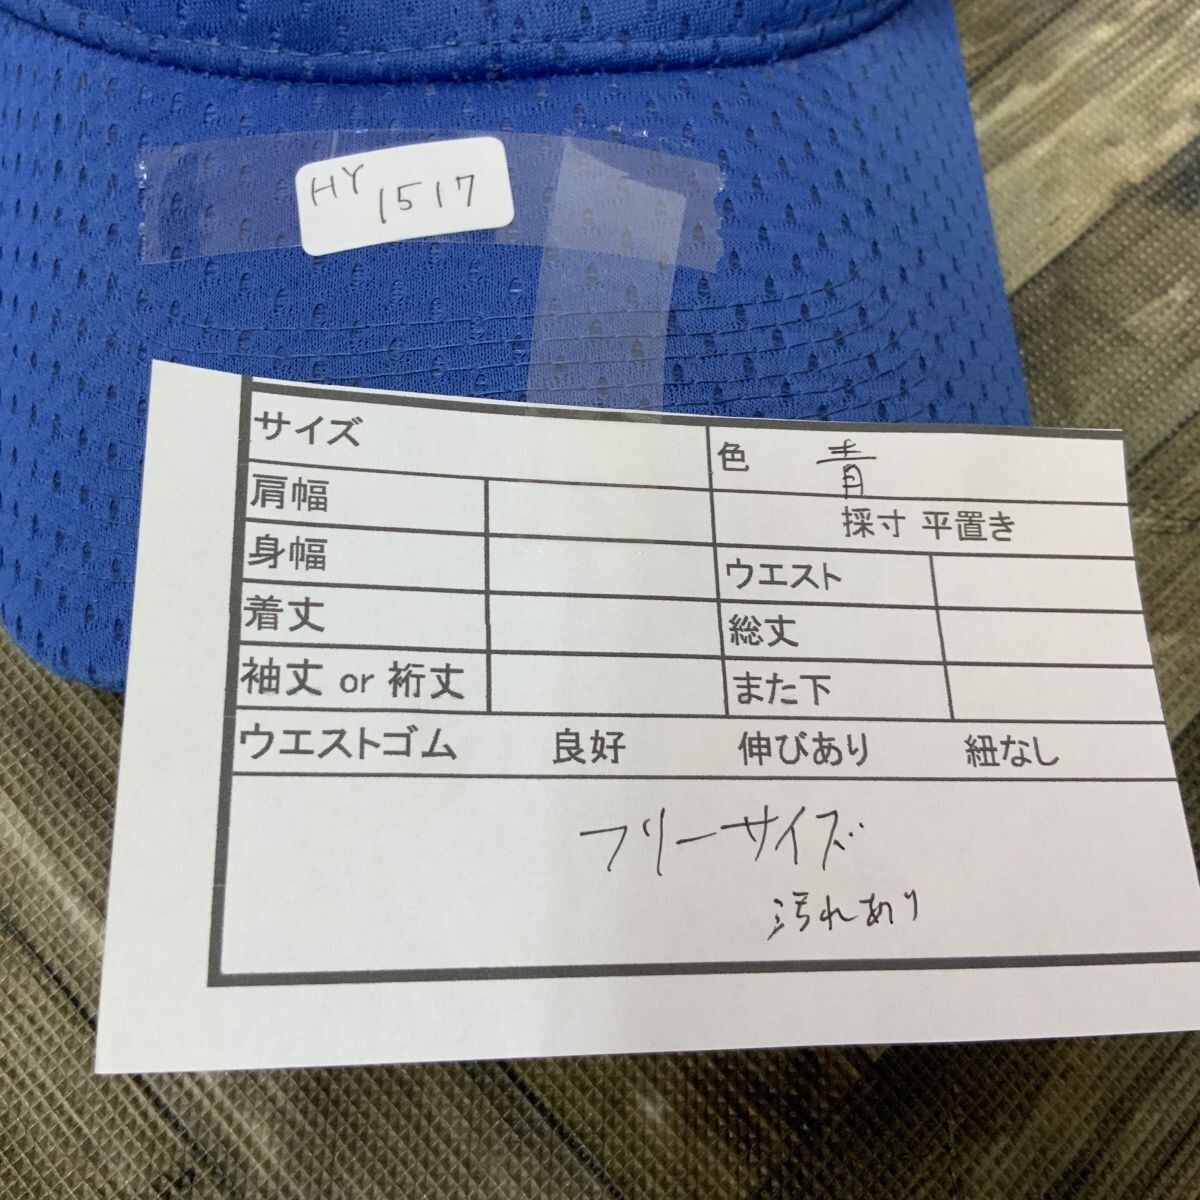 HY 1517
サイズ
色 青
肩幅
採寸 平置き
身幅
ウエスト
着丈
総丈
袖丈 or 裄丈
また下
ウエストゴム 良好 伸びあり 紐なし
フリーサイズ
汚れあり